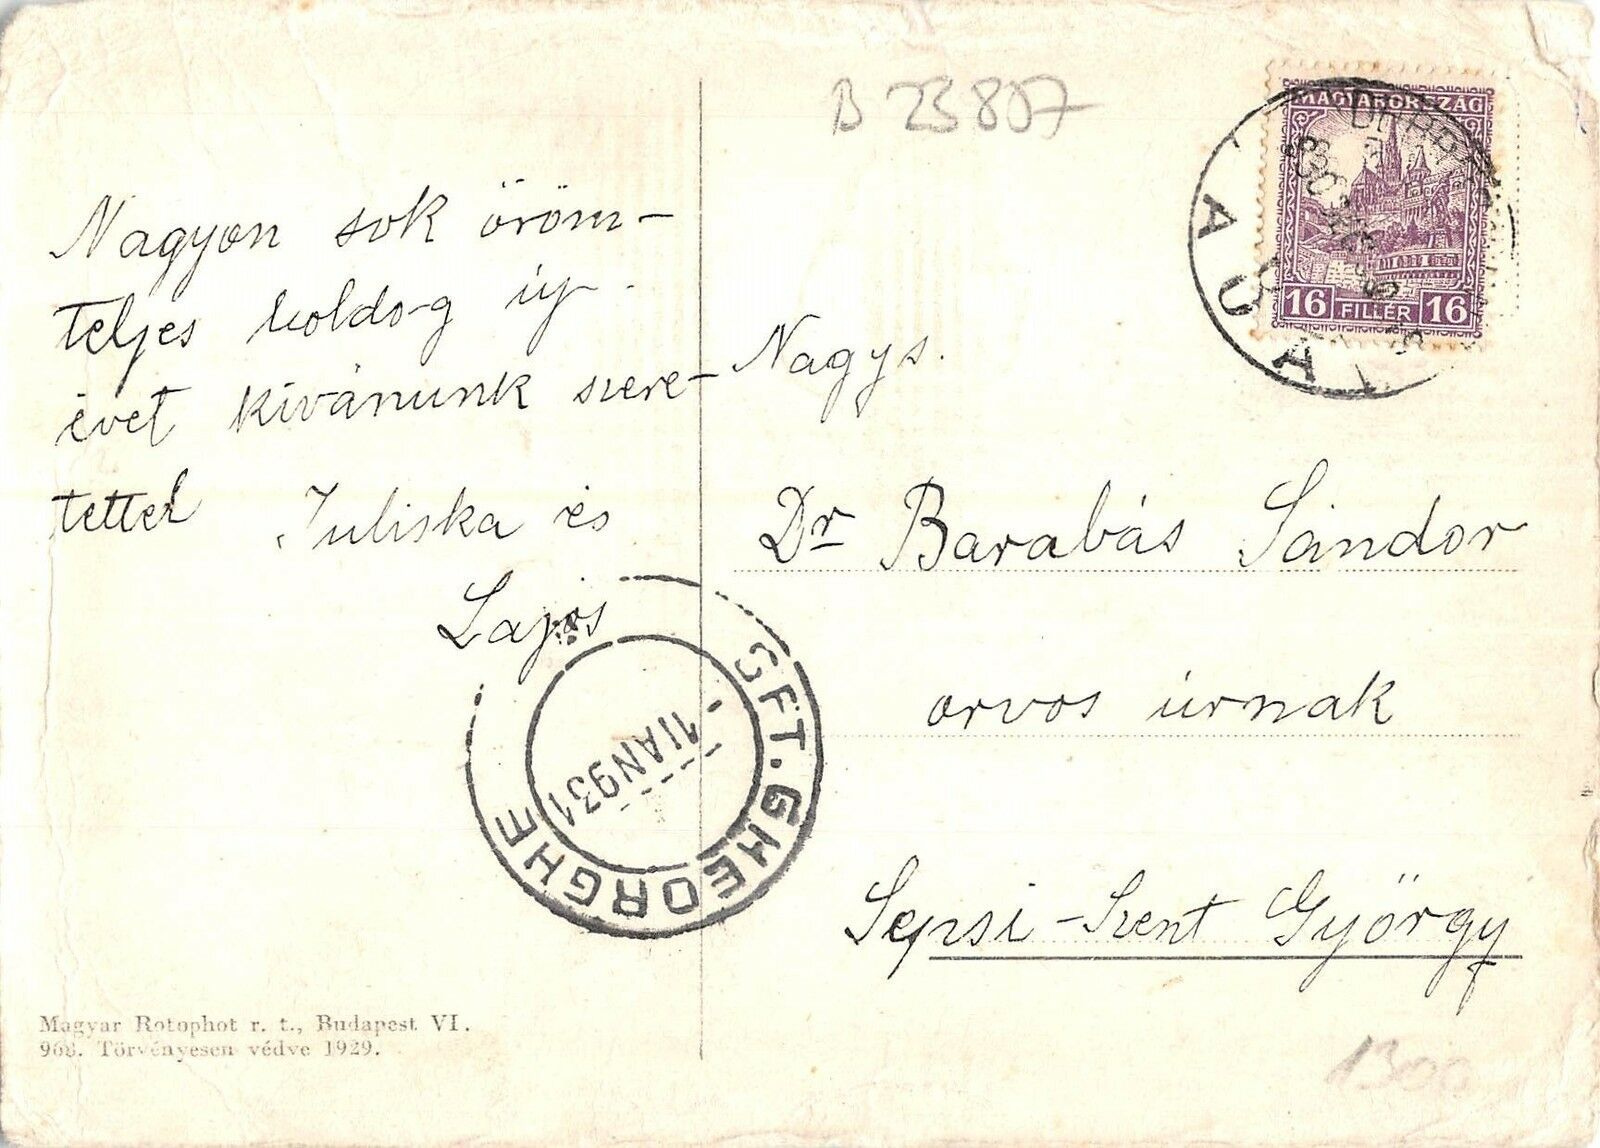 B 23807
MAGYARORSZÁG
16 FILLÉR 16
Nagyon sok öröm-
teljes boldog új
évet kívánunk szere-
tettel Juliska és
Lajos
Nagys.
Dr Barabás Sándor
orvos úrnak
Sepsi-Szent György
SFT. GHEORGHE
1IAN931
Magyar Rotophot r. t., Budapest VI.
968. Törvényesen védve 1929.
1300